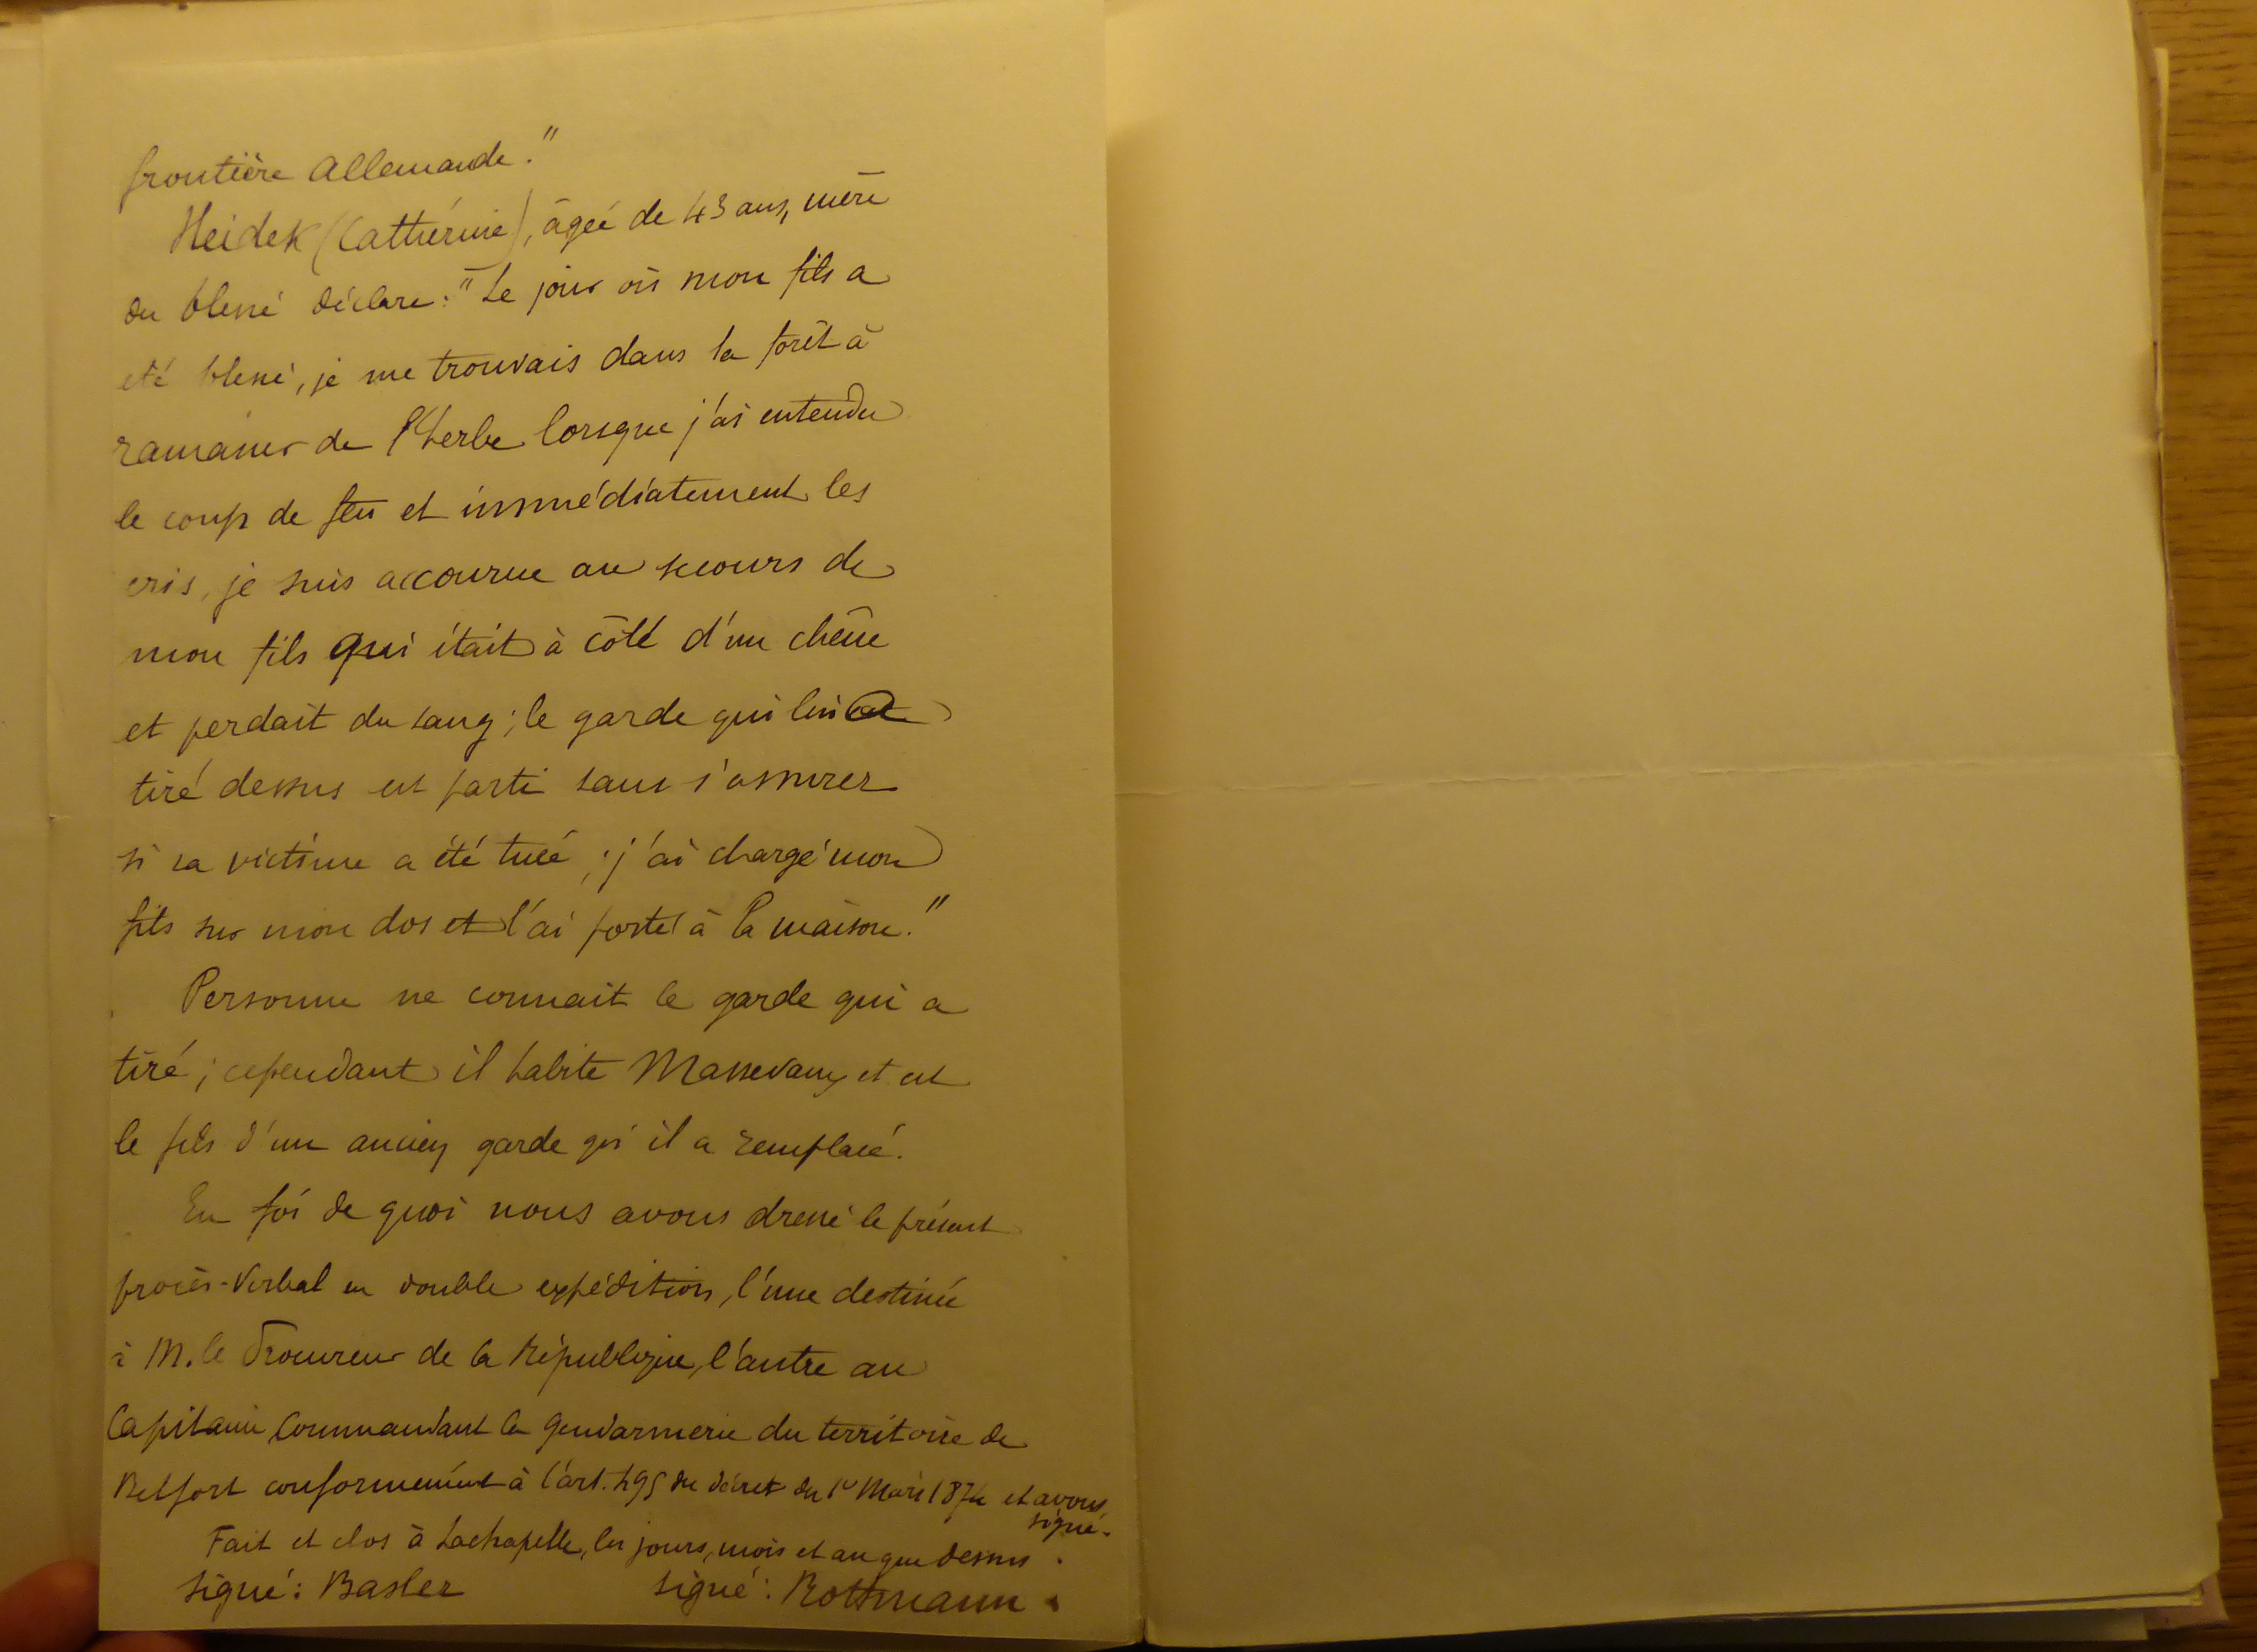 frontière Allemande."
Heidek (Cathérine), âgée de 43 ans, mère
du blessé déclare: "Le jour où mon fils a
été blessé, je me trouvais dans la forêt à
ramasser de l'herbe lorsque j'ai entendu
le coup de feu et immédiatement les
cris, je suis accourue au secours de
mon fils qui était à côté d'un chêne
et perdait du sang; le garde qui lui a
tiré dessus est parti sans s'assurer
si sa victime a été tuée; j'ai chargé mon
fils sur mon dos et l'ai porté à la maison."
Personne ne connait le garde qui a
tiré; cependant il habite Massevaux et est
le fils d'un ancien garde qu'il a remplacé.
En foi de quoi nous avons dressé le présent
procès-Verbal en double expédition, l'une destinée
à M. le Procureur de la République, l'autre au
Capitaine Commandant la Gendarmerie du territoire de
Belfort conformément à l'art. 495 du décret du 1er Mars 1854 et avons
signé.
Fait et clos à Lachapelle, les jours, mois et an que dessus.
Signé: Basler Signé: Rottmann.